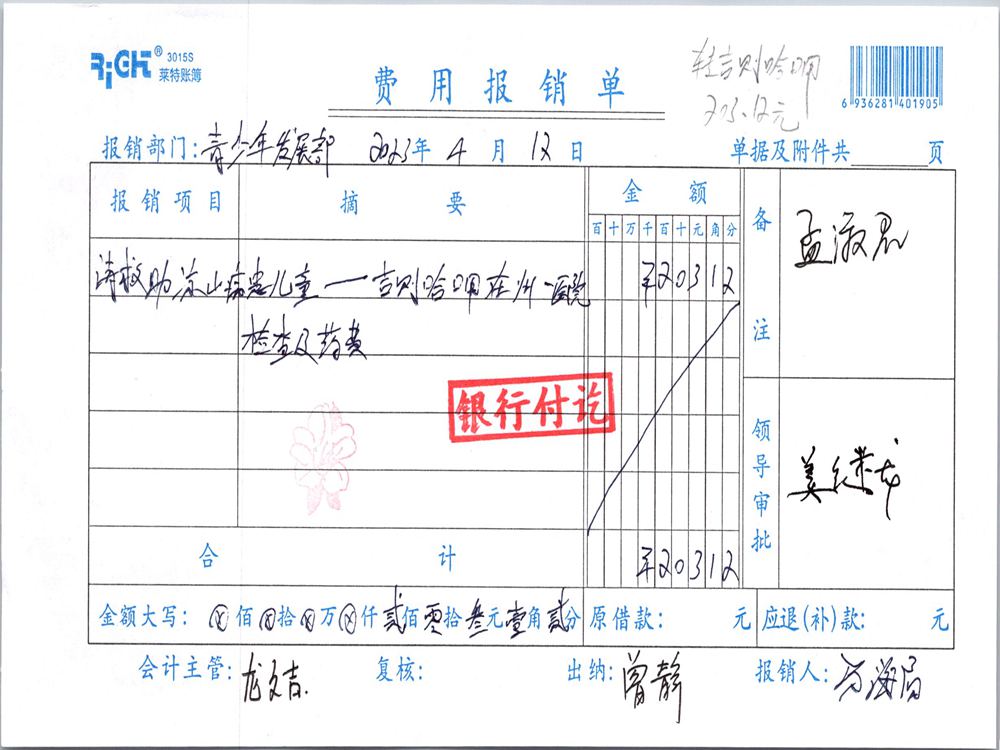 RiGHT® 3015S
莱特账簿
费用报销单
转吉则哈呷
203.12元
6 936281 401905
报销部门: 青少年发展部 2023年 4 月 12 日 单据及附件共 页
报销项目 摘要 金额 备注
百十万千百十元角分
孟淑君
涛救助凉山病患儿童一吉则哈呷在州一医院 ¥20312
检查及药费
银行付讫
领导审批
姜继龙
合计 ¥20312
金额大写: ⓧ佰ⓧ拾ⓧ万ⓧ仟贰佰零拾叁元壹角贰分 原借款: 元 应退(补)款: 元
会计主管: 龙文吉 复核: 出纳: 曾静 报销人: